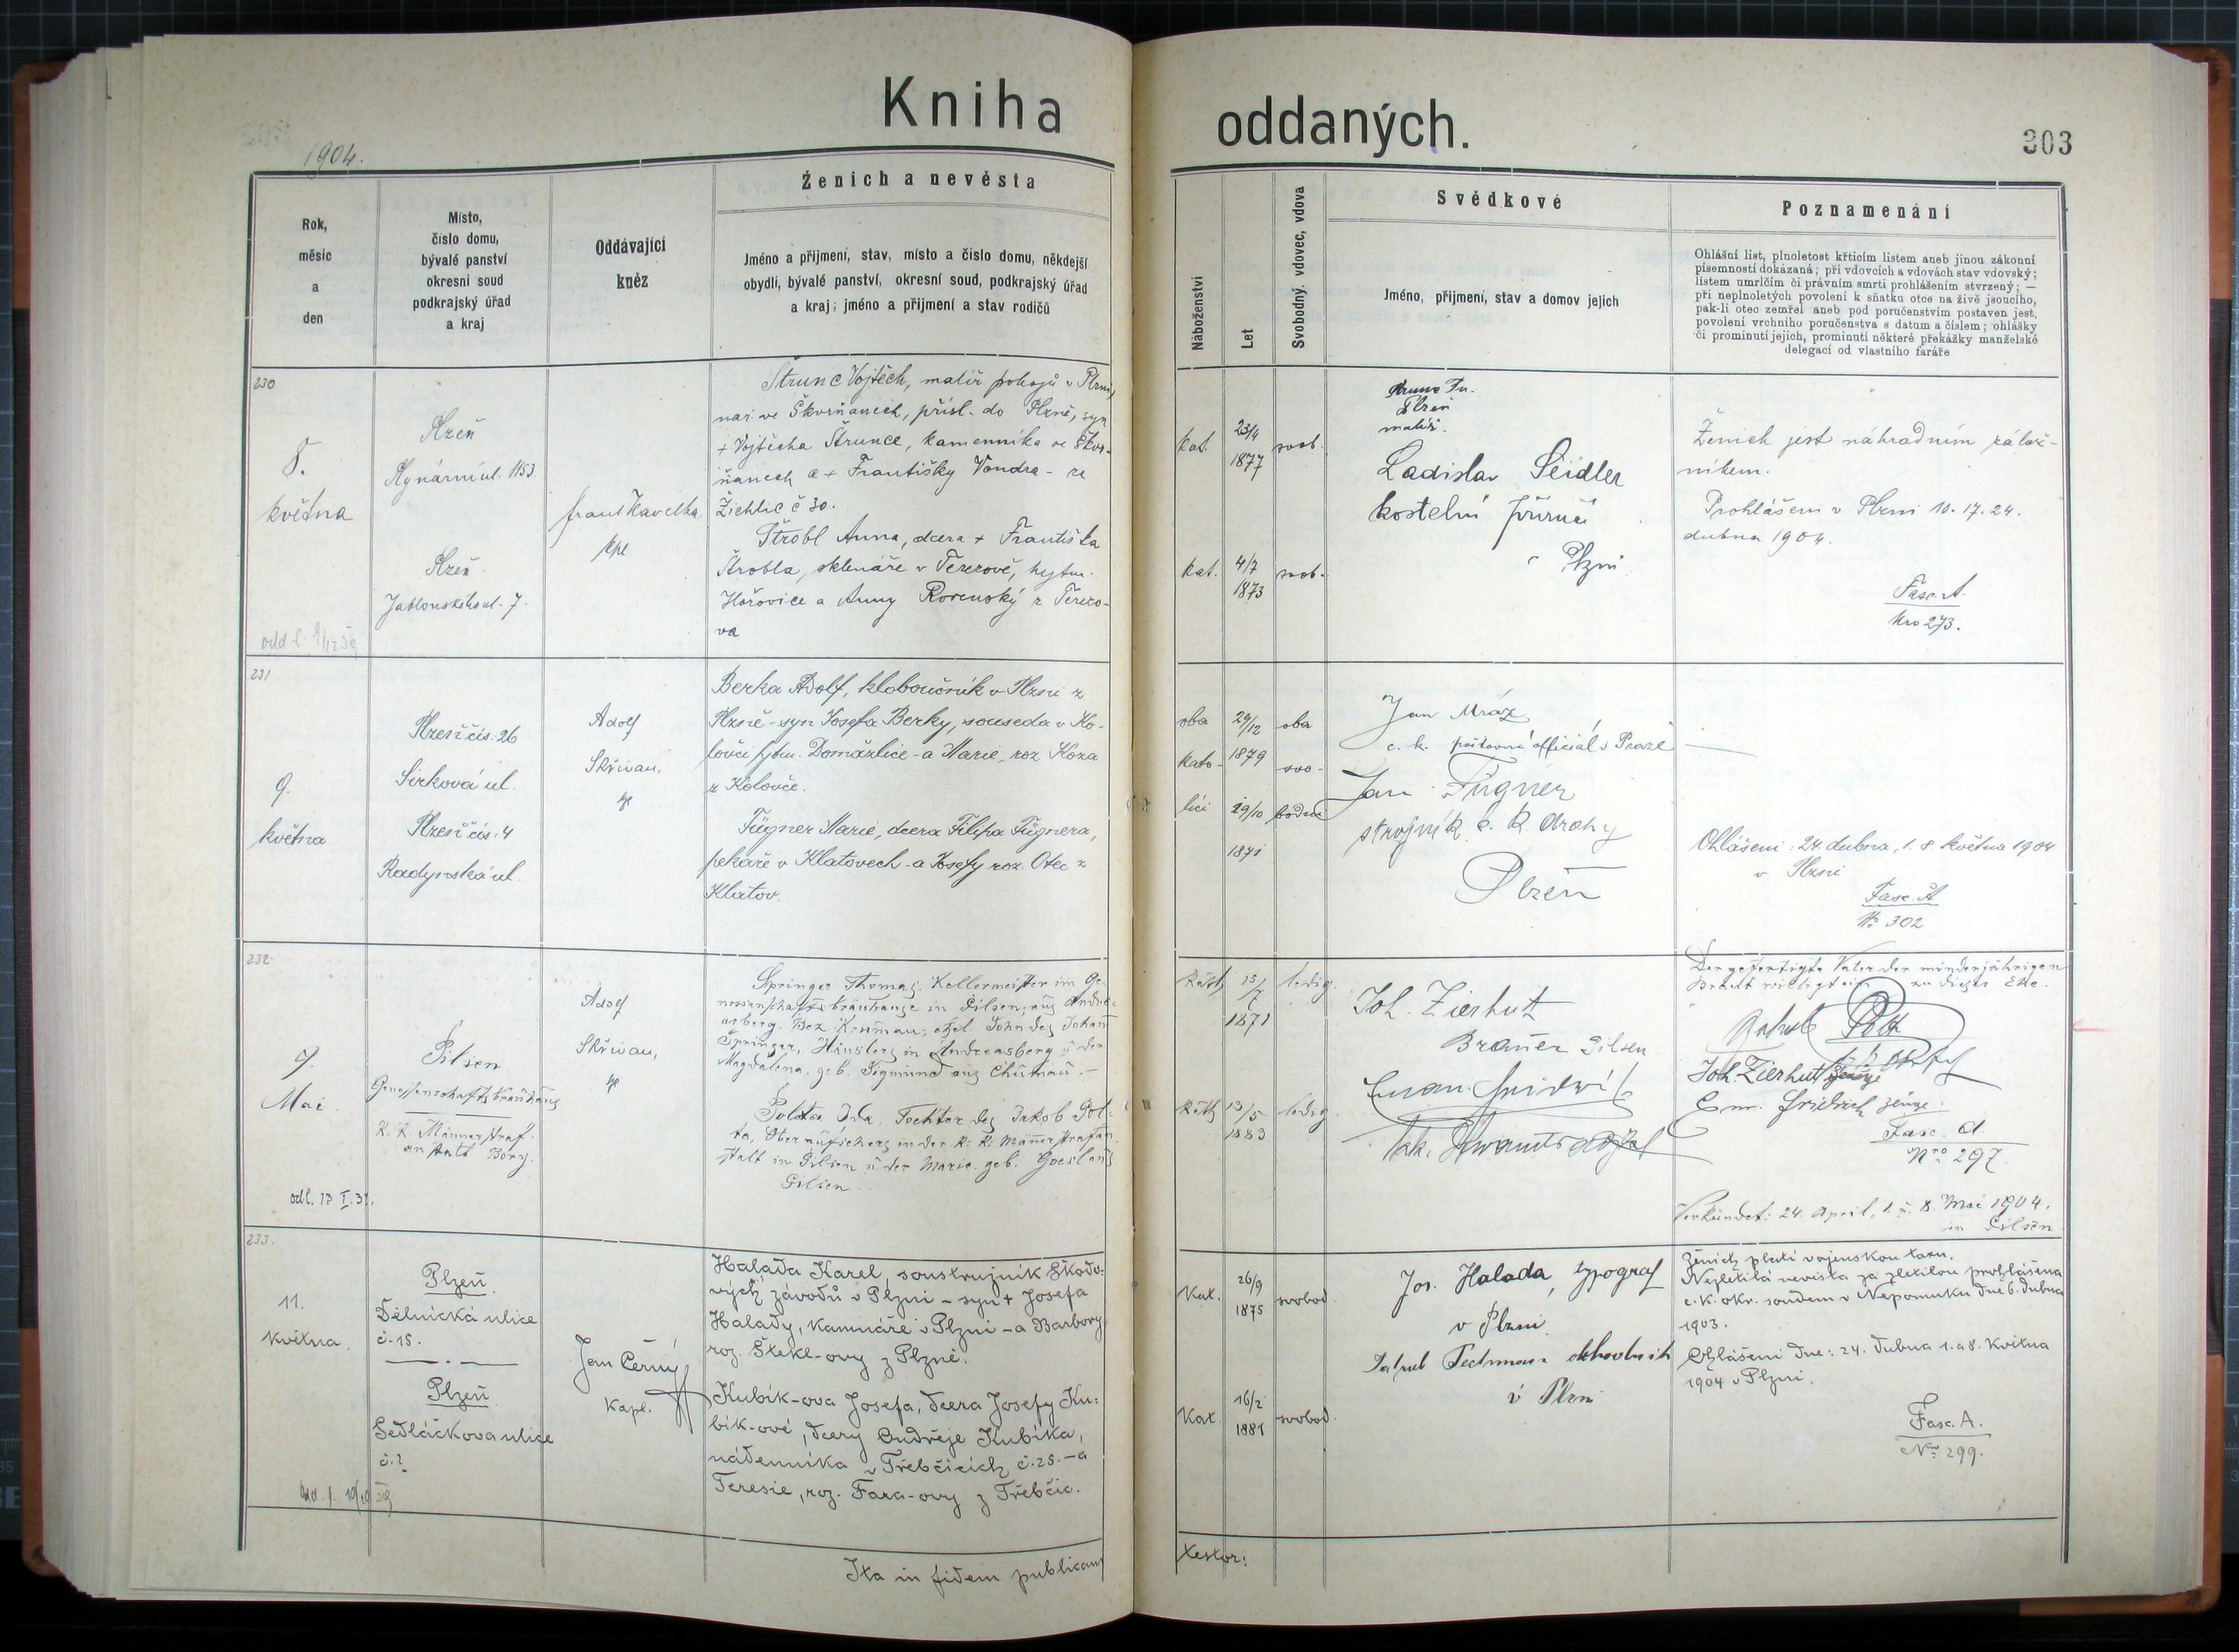 Kniha oddaných.
303
1904.
Rok,
měsíc
a
den
Místo,
číslo domu,
bývalé panství
okresní soud
podkrajský úřad
a kraj
Oddávající
kněz
Ženich a nevěsta
Jméno a přijmení, stav, místo a číslo domu, někdejší
obydlí, bývalé panství, okresní soud, podkrajský úřad
a kraj; jméno a přijmení a stav rodičů
Náboženství
Let
Svobodný, vdovec, vdova
Svědkové
Jméno, přijmení, stav a domov jejich
Poznamenání
Ohlášní list, plnoletost křticím listem aneb jinou zákonní
písemností dokázaná; při vdovcích a vdovách stav vdovský;
listem umrlčím či právním smrti prohlášením stvrzený; —
při neplnoletých povolení k sňatku otce na živě jsoucího,
pak-li otec zemřel aneb pod poručenstvím postaven jest,
povolení vrchního poručenstva s datum a číslem; ohlášky
či prominutí jejich, prominutí některé překážky manželské
delegací od vlastního faráře
230
8.
května
Plzeň
Mlynární ul. 1153
Plzeň
Jablonského ul. 7.
Frant. Kavelka
kpl
Štrunc Vojtěch, malíř pokojů v Plzni,
nar. ve Škvrňanech, přísl. do Plzně, syn
+ Vojtěcha Štrunce, kamenníka ve Škvr-
ňanech a + Františky Vondra - ze
Žichlic č 30.
Štrobl Anna, dcera + Františka
Štrobla, sklenáře v Terezově, hejtm.
Hořovice a Anny Rovenský z Terezo-
va
kat.
23/4
1877
svob.
kat.
4/7
1873
svob.
Plzeň
malíř.
Ladislav Seidler
kostelní
v Plzni
Ženich jest náhradním zálož-
níkem.
Prohlášeni v Plzni 10. 17. 24.
dubna 1904.
Fasc. A.
Nro 273.
231
9.
května
Plzeň čís: 26
Sirková ul.
Plzeň čís: 4
Radyňská ul.
Adolf
Skřivan,
kpl
Berka Adolf, kloboučník v Plzni z
Plzně - syn Josefa Berky, souseda v Ko-
lovči hejtm. Domažlice - a Marie, roz Koza
z Kolovče.
Fügner Marie, dcera Filipa Fügnera,
pekaře v Klatovech - a Josefy roz. Otec z
Klatov.
oba
kato-
líci
29/12
1879
29/10
1871
oba
svo-
bodní
Jan Mráz
c. k. poštovní official v Praze
Jan Fügner
strojník c. k. dráhy
Plzeň
Ohlášeni: 24 dubna, 1. 8. května 1904
v Plzni
Fasc. A
No 302
232
9.
Mai.
Pilsen
Genossenschaftsbräuhaus
K. K. Männerstraf-
anstalt Bory.
odl. 13 I. 31.
Adolf
Skřivan,
kpl
Springer Thomas, Kellermeister im Ge-
nossenschaftsbräuhause in Pilsen, aus Andre-
asberg. Bez. Krumau, ehel. Sohn des Johann
Springer, Häuslers in Andreasberg u. der
Magdalena. geb. Sigmund aus Chumau. -
Polta Ida. Tochter des Jakob Pol-
ta, Oberaufsehers in der K. K. Männerstrafan-
stalt in Pilsen u. der Marie. geb. Goeslaus
Pilsen.
Kath
1871
ledig.
Kath
13/5
1883
ledig.
Joh. Zierhut
Brauer Pilsen
Der gefertigte Vater der minderjährigen
Braut willigt ein zu dieser Ehe.
Joh. Zierhut
Em. Friedrich Zeuge.
Fasc. A
Nro 297.
Verkündet: 24. April, 1. u. 8. Mai 1904.
in Pilsen
233.
11.
května.
Plzeň
Dělnická ulice
č. 15.
Plzeň
Sedláčkova ulice
č. 2
Jan Černý
Kapl.
Halada Karel, soustružník Škodo-
vých závodů v Plzni - syn + Josefa
Halady, kamnáře v Plzni - a Barbory
roz. Štekl-ovy z Plzně.
Kubík-ova Josefa, dcera Josefy Ku-
bík-ové, dcery Ondřeje Kubíka,
nádenníka v Třebčicích č. 25. - a
Teresie, roz. Fara-ovy z Třebčic.
Kat.
26/9
1875
svobod.
Kat.
16/2
1881
svobod.
Jos. Halada, typograf
v Plzni.
v Plzni
Ženich platí vojenskou taxu.
Nezletilá nevěsta za zletilou prohlášena
c. k. okr. soudem v Nepomuku dne 6. dubna
1903.
Ohlášeni dne: 24. dubna 1. a 8. května
1904 v Plzni.
Fasc. A.
Nro 299.
Ita in fidem publicam
testor: